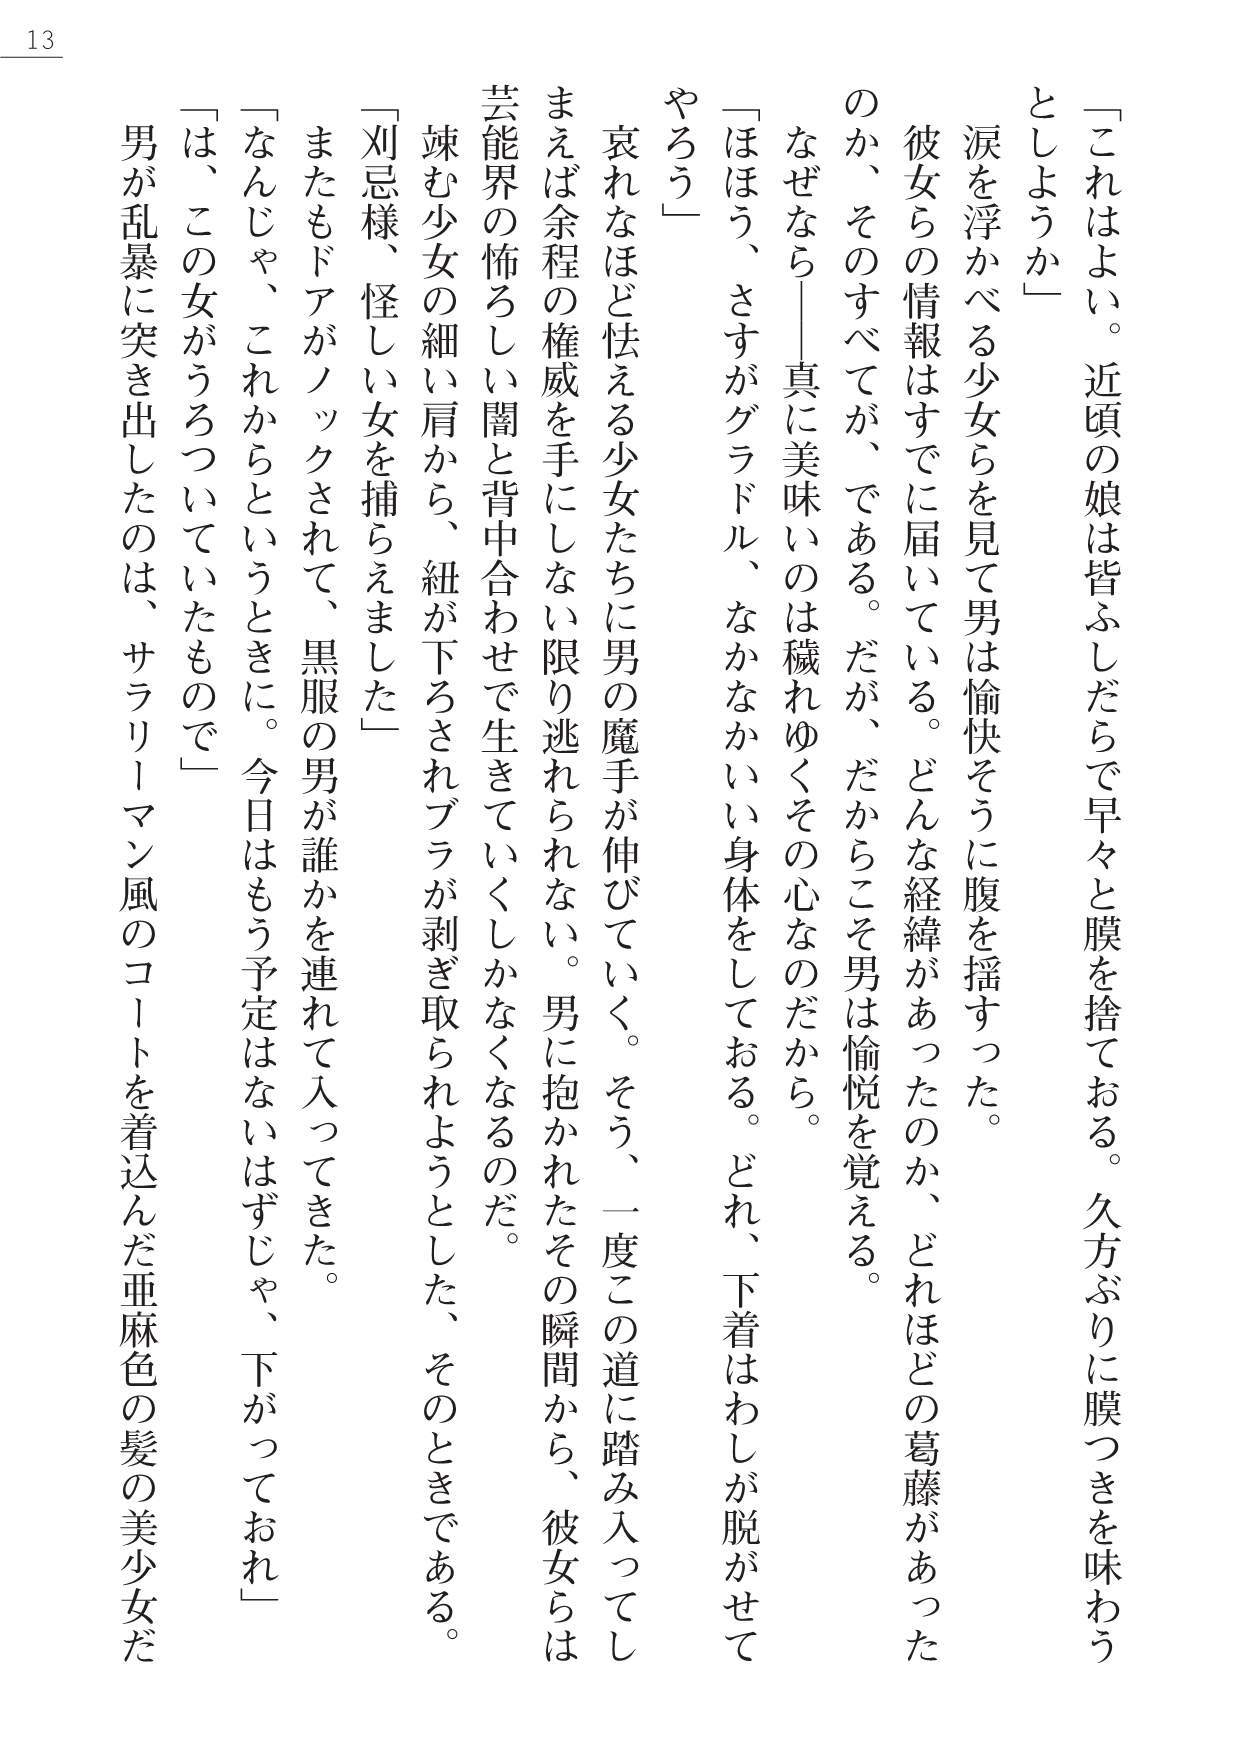 13
「これはよい。近頃の娘は皆ふしだらで早々と膜を捨ておる。久方ぶりに膜つきを味わう
としようか」
涙を浮かべる少女らを見て男は愉快そうに腹を揺すった。
彼女らの情報はすでに届いている。どんな経緯があったのか、どれほどの葛藤があった
のか、そのすべてが、である。だが、だからこそ男は愉悦を覚える。
なぜなら――真に美味いのは穢れゆくその心なのだから。
「ほほう、さすがグラドル、なかなかいい身体をしておる。どれ、下着はわしが脱がせて
やろう」
哀れなほど怯える少女たちに男の魔手が伸びていく。そう、一度この道に踏み入ってし
まえば余程の権威を手にしない限り逃れられない。男に抱かれたその瞬間から、彼女らは
芸能界の怖ろしい闇と背中合わせで生きていくしかなくなるのだ。
竦む少女の細い肩から、紐が下ろされブラが剥ぎ取られようとした、そのときである。
「刈忌様、怪しい女を捕らえました」
またもドアがノックされて、黒服の男が誰かを連れて入ってきた。
「なんじゃ、これからというときに。今日はもう予定はないはずじゃ、下がっておれ」
「は、この女がうろついていたもので」
男が乱暴に突き出したのは、サラリーマン風のコートを着込んだ亜麻色の髪の美少女だ